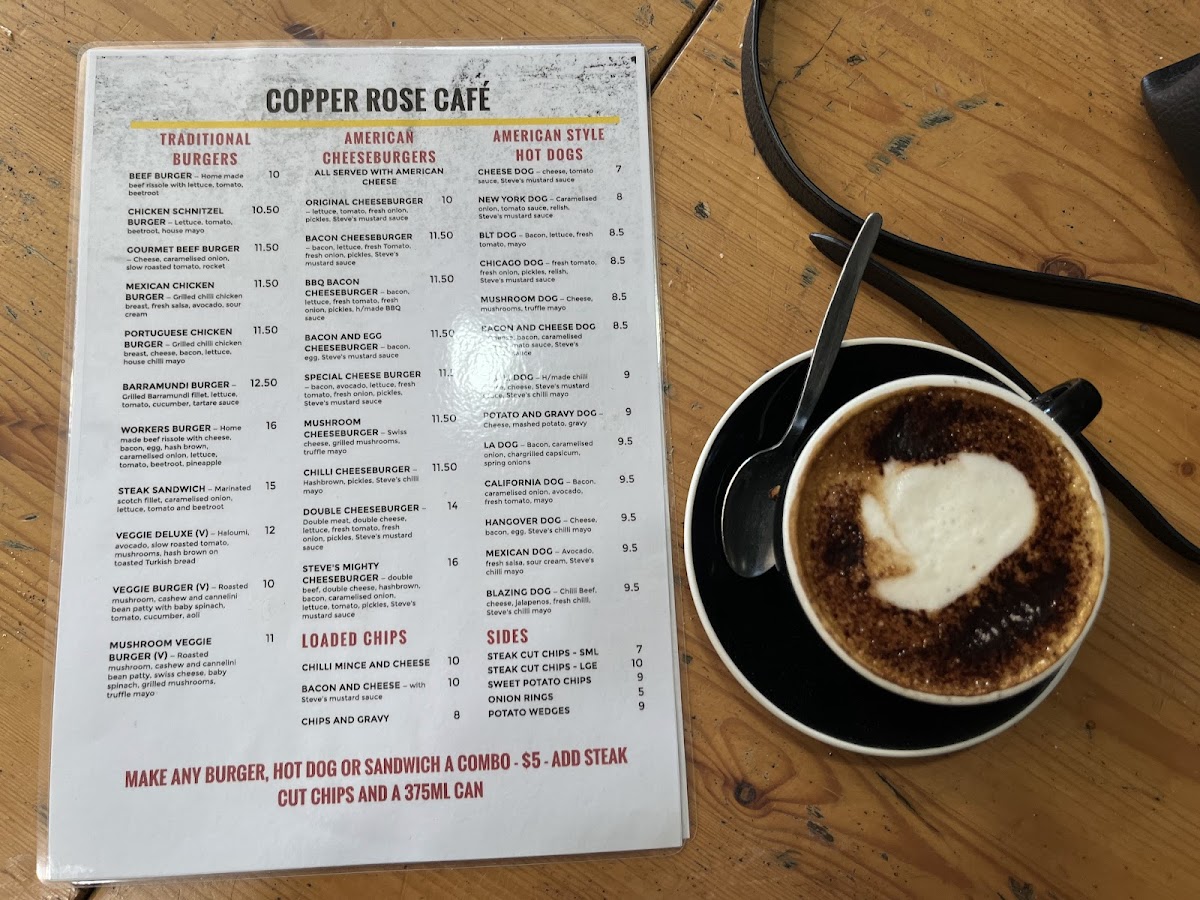 COPPER ROSE CAFÉ
TRADITIONAL
BURGERS
BEEF BURGER – Home made 10
beef rissole with lettuce, tomato,
beetroot
CHICKEN SCHNITZEL 10.50
BURGER – Lettuce, tomato,
beetroot, house mayo
GOURMET BEEF BURGER 11.50
– Cheese, caramelised onion,
slow roasted tomato, rocket
MEXICAN CHICKEN 11.50
BURGER – Grilled chilli chicken
breast, fresh salsa, avocado, sour
cream
PORTUGUESE CHICKEN 11.50
BURGER – Grilled chilli chicken
breast, cheese, bacon, lettuce,
house chilli mayo
BARRAMUNDI BURGER – 12.50
Grilled Barramundi fillet, lettuce,
tomato, cucumber, tartare sauce
WORKERS BURGER – Home 16
made beef rissole with cheese,
bacon, egg, hash brown,
caramelised onion, lettuce,
tomato, beetroot, pineapple
STEAK SANDWICH – Marinated 15
scotch fillet, caramelised onion,
lettuce, tomato and beetroot
VEGGIE DELUXE (V) – Haloumi, 12
avocado, slow roasted tomato,
mushrooms, hash brown on
toasted Turkish bread
VEGGIE BURGER (V) – Roasted 10
mushroom, cashew and cannelini
bean patty with baby spinach,
tomato, cucumber, aoli
MUSHROOM VEGGIE 11
BURGER (V) – Roasted
mushroom, cashew and cannelini
bean patty, swiss cheese, baby
spinach, grilled mushrooms,
truffle mayo
AMERICAN
CHEESEBURGERS
ALL SERVED WITH AMERICAN
CHEESE
ORIGINAL CHEESEBURGER 10
– lettuce, tomato, fresh onion,
pickles, Steve's mustard sauce
BACON CHEESEBURGER 11.50
– bacon, lettuce, fresh Tomato,
fresh onion, pickles, Steve's
mustard sauce
BBQ BACON 11.50
CHEESEBURGER – bacon,
lettuce, fresh tomato, fresh
onion, pickles, h/made BBQ
sauce
BACON AND EGG 11.50
CHEESEBURGER – bacon,
egg, Steve's mustard sauce
SPECIAL CHEESE BURGER
– bacon, avocado, lettuce, fresh
tomato, fresh onion, pickles,
Steve's mustard sauce
MUSHROOM 11.50
CHEESEBURGER – Swiss
cheese, grilled mushrooms,
truffle mayo
CHILLI CHEESEBURGER – 11.50
Hashbrown, pickles, Steve's chilli
mayo
DOUBLE CHEESEBURGER – 14
Double meat, double cheese,
lettuce, fresh tomato, fresh
onion, pickles, Steve's mustard
sauce
STEVE'S MIGHTY 16
CHEESEBURGER – double
beef, double cheese, hashbrown,
bacon, caramelised onion,
lettuce, tomato, pickles, Steve's
mustard sauce
LOADED CHIPS
CHILLI MINCE AND CHEESE 10
BACON AND CHEESE – with 10
Steve's mustard sauce
CHIPS AND GRAVY 8
AMERICAN STYLE
HOT DOGS
CHEESE DOG – cheese, tomato 7
sauce, Steve's mustard sauce
NEW YORK DOG – Caramelised 8
onion, tomato sauce, relish,
Steve's mustard sauce
BLT DOG – Bacon, lettuce, fresh 8.5
tomato, mayo
CHICAGO DOG – fresh tomato, 8.5
fresh onion, pickles, relish,
Steve's mustard sauce
MUSHROOM DOG – Cheese, 8.5
mushrooms, truffle mayo
BACON AND CHEESE DOG 8.5
bacon, caramelised
sauce, Steve's
DOG – H/made chilli 9
cheese, Steve's mustard
Steve's chilli mayo
POTATO AND GRAVY DOG – 9
Cheese, mashed potato, gravy
LA DOG – Bacon, caramelised 9.5
onion, chargrilled capsicum,
spring onions
CALIFORNIA DOG – Bacon, 9.5
caramelised onion, avocado,
fresh tomato, mayo
HANGOVER DOG – Cheese, 9.5
bacon, egg, Steve's chilli mayo
MEXICAN DOG – Avocado, 9.5
fresh salsa, sour cream, Steve's
chilli mayo
BLAZING DOG – Chilli Beef, 9.5
cheese, jalapenos, fresh chilli,
Steve's chilli mayo
SIDES
STEAK CUT CHIPS – SML 7
STEAK CUT CHIPS – LGE 10
SWEET POTATO CHIPS 9
ONION RINGS 5
POTATO WEDGES 9
MAKE ANY BURGER, HOT DOG OR SANDWICH A COMBO - $5 - ADD STEAK
CUT CHIPS AND A 375ML CAN